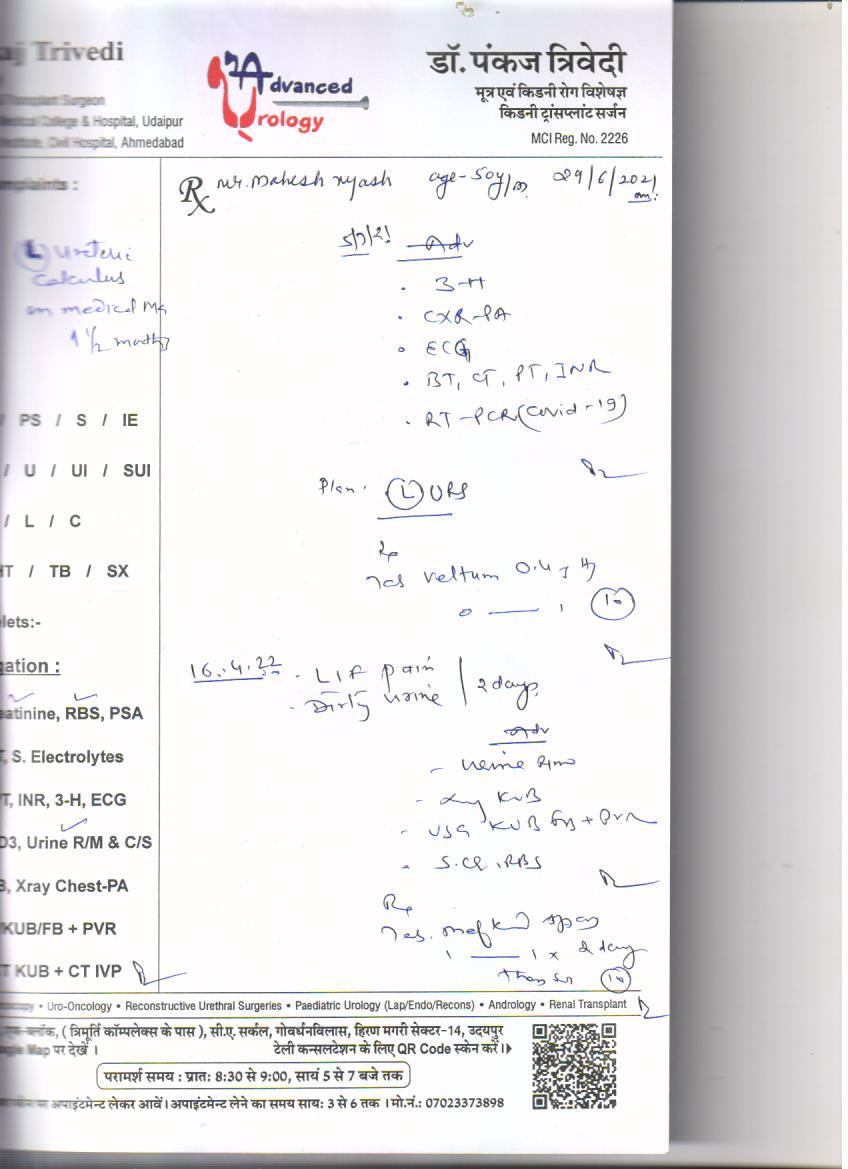 Trivedi
Advanced
Urology
डॉ. पंकज त्रिवेदी
मूत्र एवं किडनी रोग विशेषज्ञ
किडनी ट्रांसप्लांट सर्जन
MCI Reg. No. 2226
Transplant Surgeon
College & Hospital, Udaipur
Civil Hospital, Ahmedabad
Rx Mr. Mahesh age-50y/m 29/6/2021
(L) Ureteric
calculus
on medical
1 1/2 months
PS / S / IE
/ U / UI / SUI
/ L / C
HT / TB / SX
Adv
• 3-H
• CXR-PA
• ECG
• BT, CT, PT, INR
• RT-PCR (Covid-19)
Plan. (L) URS
Rp
Veltum 0.4
0 — 1 (10)
16.4.22 - LIF pain / 2 days
- Dirty urine
Adv
- Urine R/m
- Xray KUB
- USG KUB FB + PVR
- S.CR, RBS
Rp
Tab. spas
1 — 1 x 2 day
(10)
eatinine, RBS, PSA
S. Electrolytes
T, INR, 3-H, ECG
D3, Urine R/M & C/S
Xray Chest-PA
KUB/FB + PVR
T KUB + CT IVP
• Uro-Oncology • Reconstructive Urethral Surgeries • Paediatric Urology (Lap/Endo/Recons) • Andrology • Renal Transplant
ब्लॉक, ( त्रिमूर्ति कॉम्पलेक्स के पास ), सी.ए. सर्कल, गोवर्धनविलास, हिरण मगरी सेक्टर-14, उदयपुर
Map पर देखें । टेली कन्सलटेशन के लिए QR Code स्केन करें।
परामर्श समय : प्रातः 8:30 से 9:00, सायं 5 से 7 बजे तक
अपाइंटमेन्ट लेकर आवें। अपाइंटमेन्ट लेने का समय सायः 3 से 6 तक । मो.नं.: 07023373898